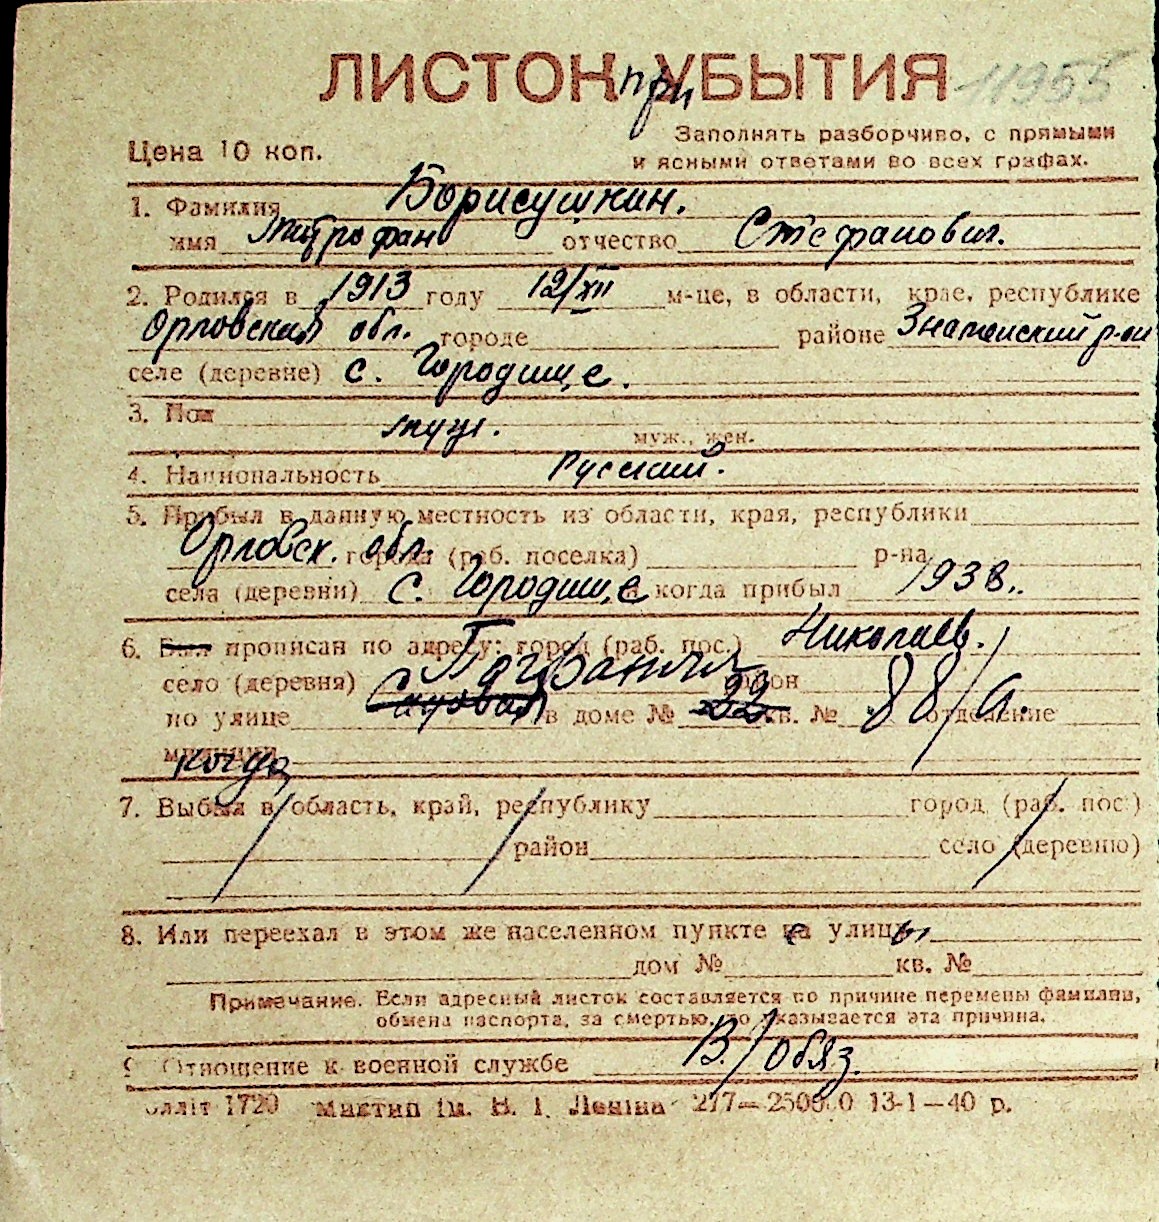 ЛИСТОК при УБЫТИЯ 11955
Цена 10 коп.
Заполнять разборчиво, с прямыми
и ясными ответами во всех графах.
1. Фамилия Борисушкин.
имя Митрофан отчество Стефанович.
2. Родился в 1913 году 12/XII м-це, в области, крае, республике
Орловская обл. городе районе Знаменский р-он
селе (деревне) с. Городище.
3. Пол муж.
муж., жен.
4. Национальность Русский.
5. Прибыл в данную местность из области, края, республики
Орловск. обл. города (раб. поселка) р-на
села (деревни) с. Городище и когда прибыл 1938.
6. Был прописан по адресу: город (раб. пос.) Николаев.
село (деревня) Погранич район
по улице Садовая в доме № 22 кв. № 88/а. отделение
милиции
когда
7. Выбыл в область, край, республику город (раб. пос.)
район село (деревню)
8. Или переехал в этом же населенном пункте с улицы
дом № кв. №
Примечание. Если адресный листок составляется по причине перемены фамилии,
обмена паспорта, за смертью, то указывается эта причина.
9. Отношение к военной службе В/обяз.
Миктип ім. В. І. Леніна 277—25000 13-1—40 р.